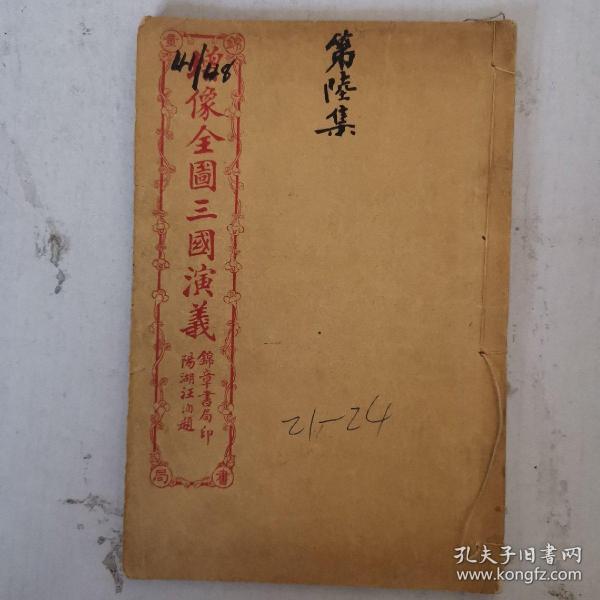 錦章
書局
繡像全圖三國演義
錦章書局印
陽湖汪洵題
41/48
第陸集
21-24
孔夫子旧书网
www.kongfz.com